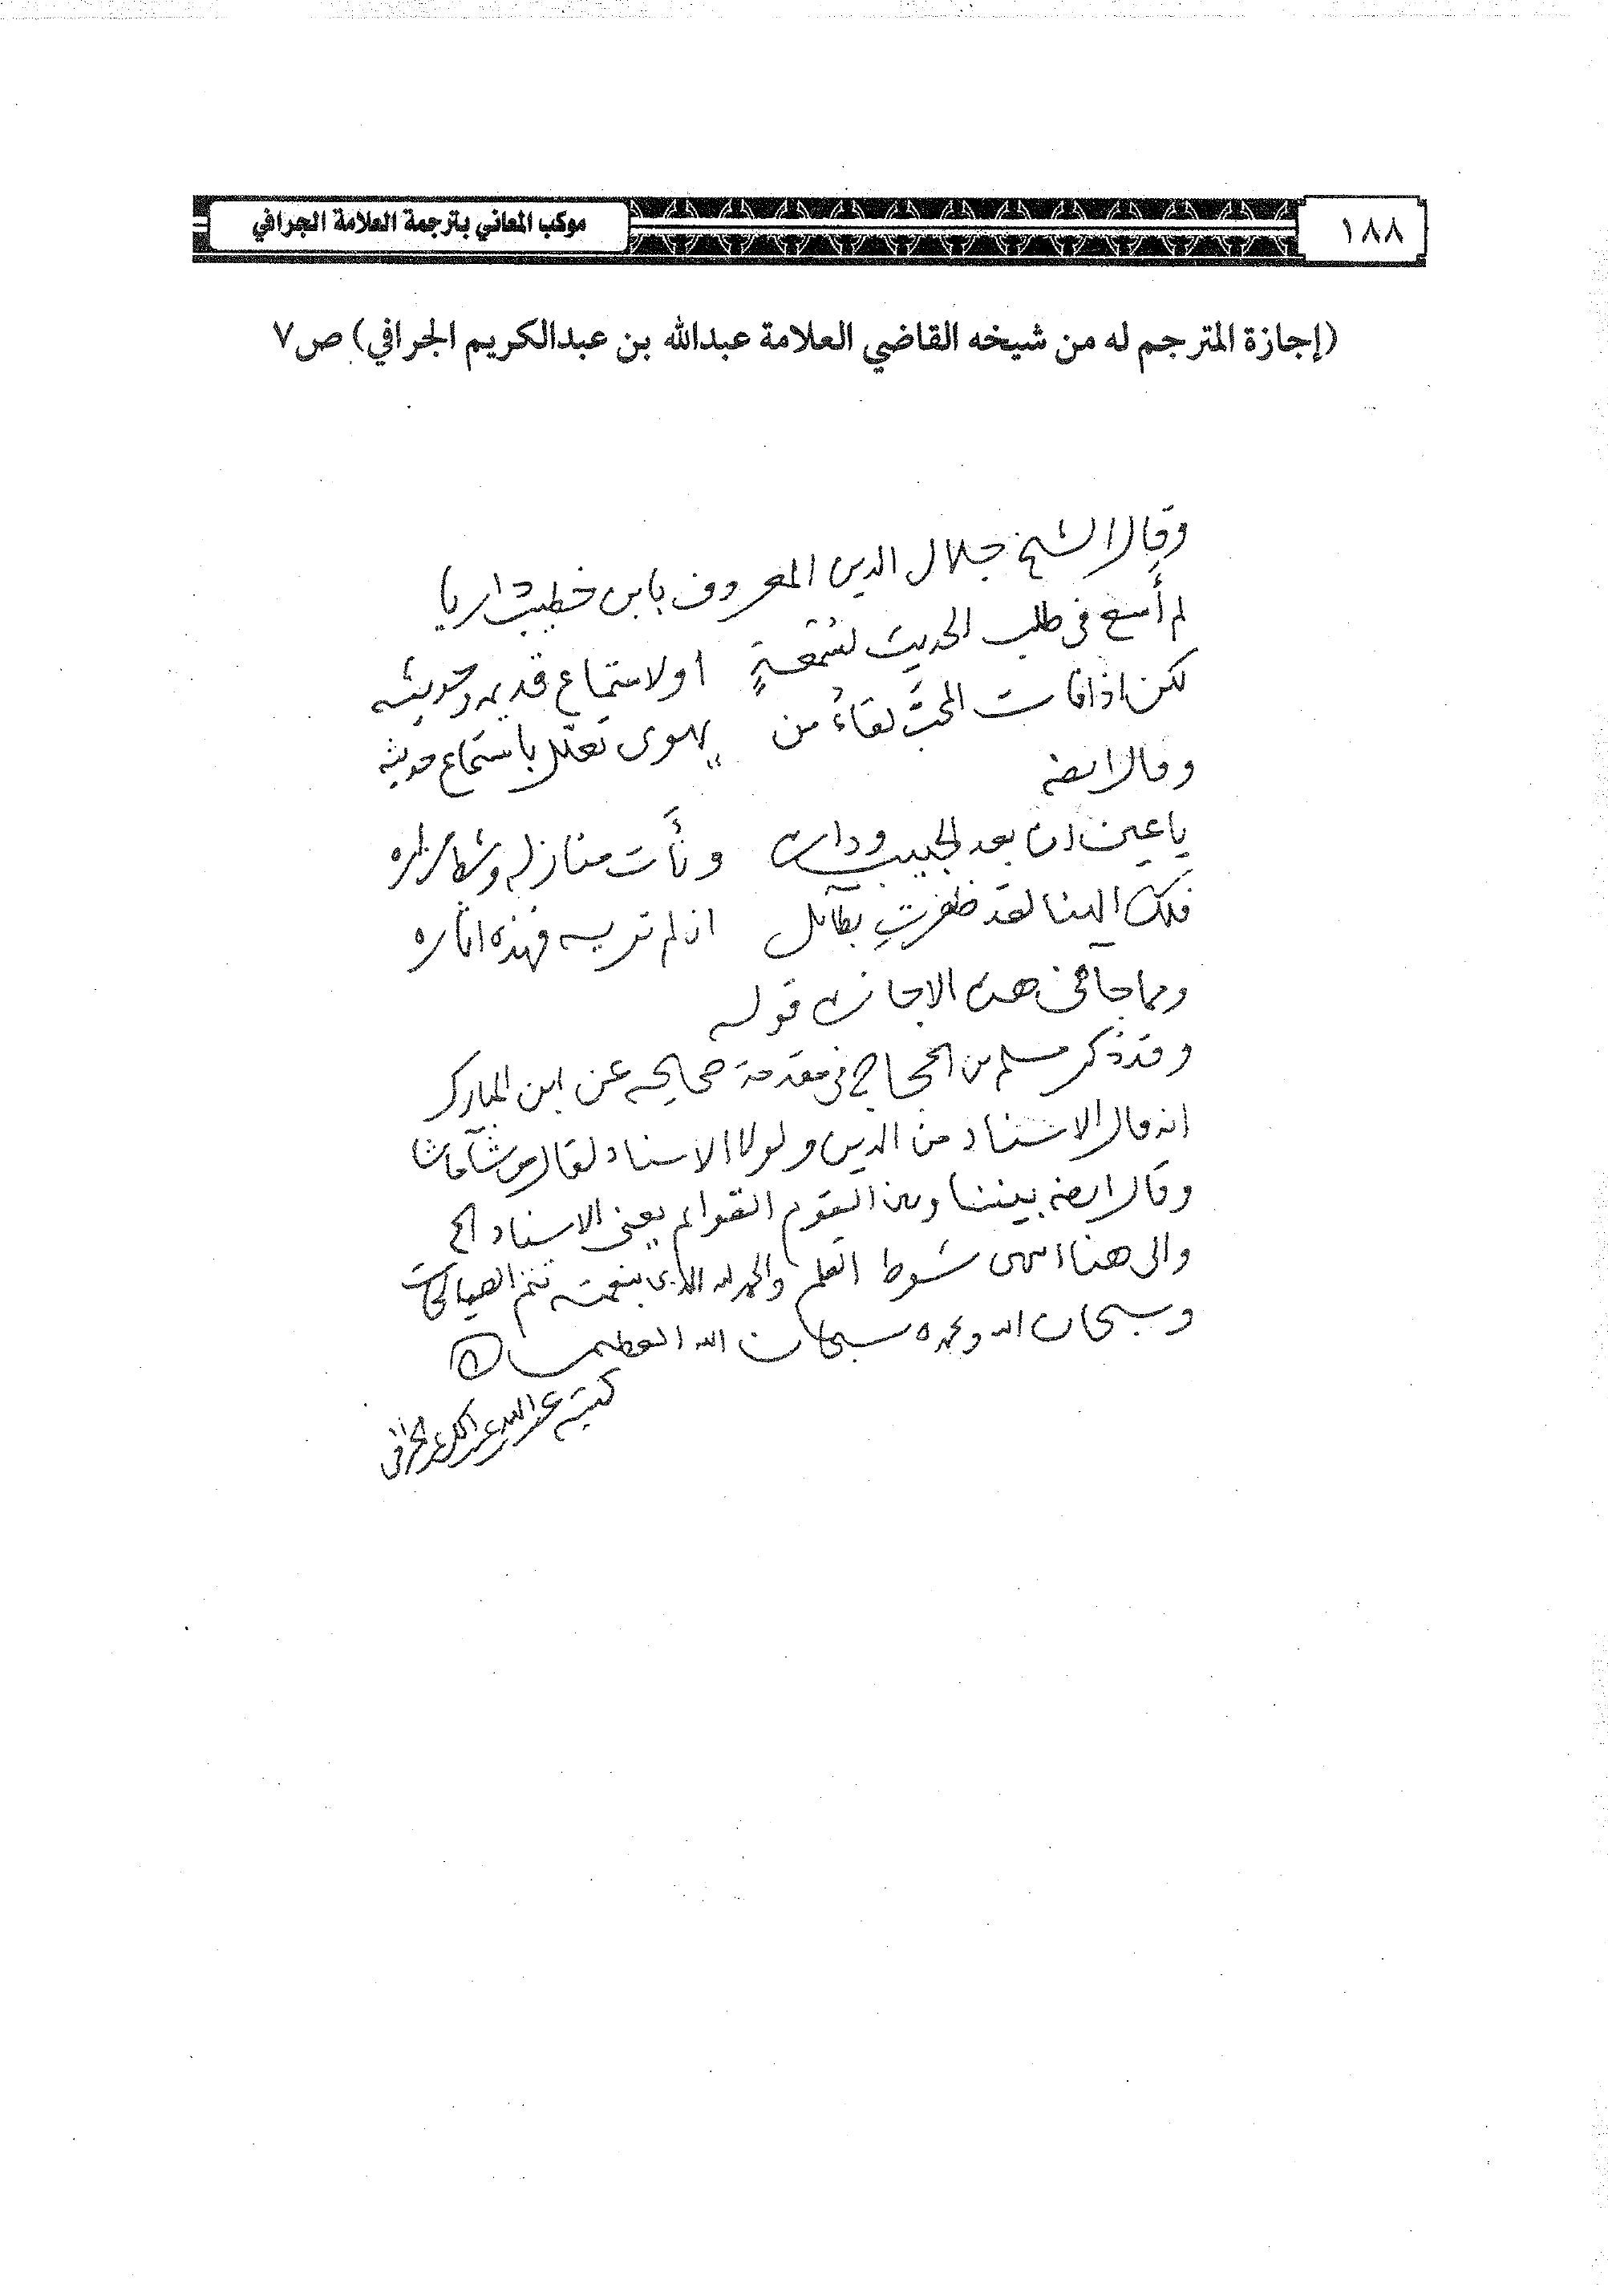 ١٨٨
موكب المعاني بترجمة العلامة الجرافي
(إجازة المترجم له من شيخه القاضي العلامة عبدالله بن عبدالكريم الجرافي) ص٧
وقال الشيخ جلال الدين المعروف بابن خطيب داريا
لم أسع في طلب الحديث لسُمعةٍ او لاستماع قديمه وحديثه
لكن اذا فات المحبَّ لقاءُ من يهوى تعلّل باستماع حديثه
وقال ايضه
يا عين ان بعد الحبيب وداره ونأت منازله وشط مزاره
فلك الهنا لقد ظفرتِ بطآئل ان لم تريه فهذه اثاره
ومما جا في هذه الاجازه قوله
وقد ذكر مسلم بن الحجاج في مقدمة صحيحه عن ابن المبارك
انه قال الاسناد من الدين ولولا الاسناد لقال من شآ ما شا
وقال ايضه بيننا وبين القوم القوائم يعني الاسناد الخ
والى هنا انتهى شوط القلم والحمد لله الذي بنعمته تتم الصالحات
وسبحان الله وبحمده سبحان الله العظيم
كتبه عبدالله بن عبدالكريم الجرافي